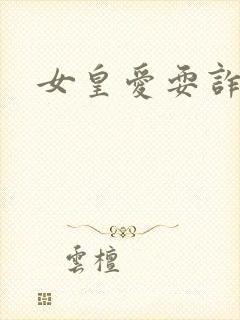 女皇愛耍詐
雲檀